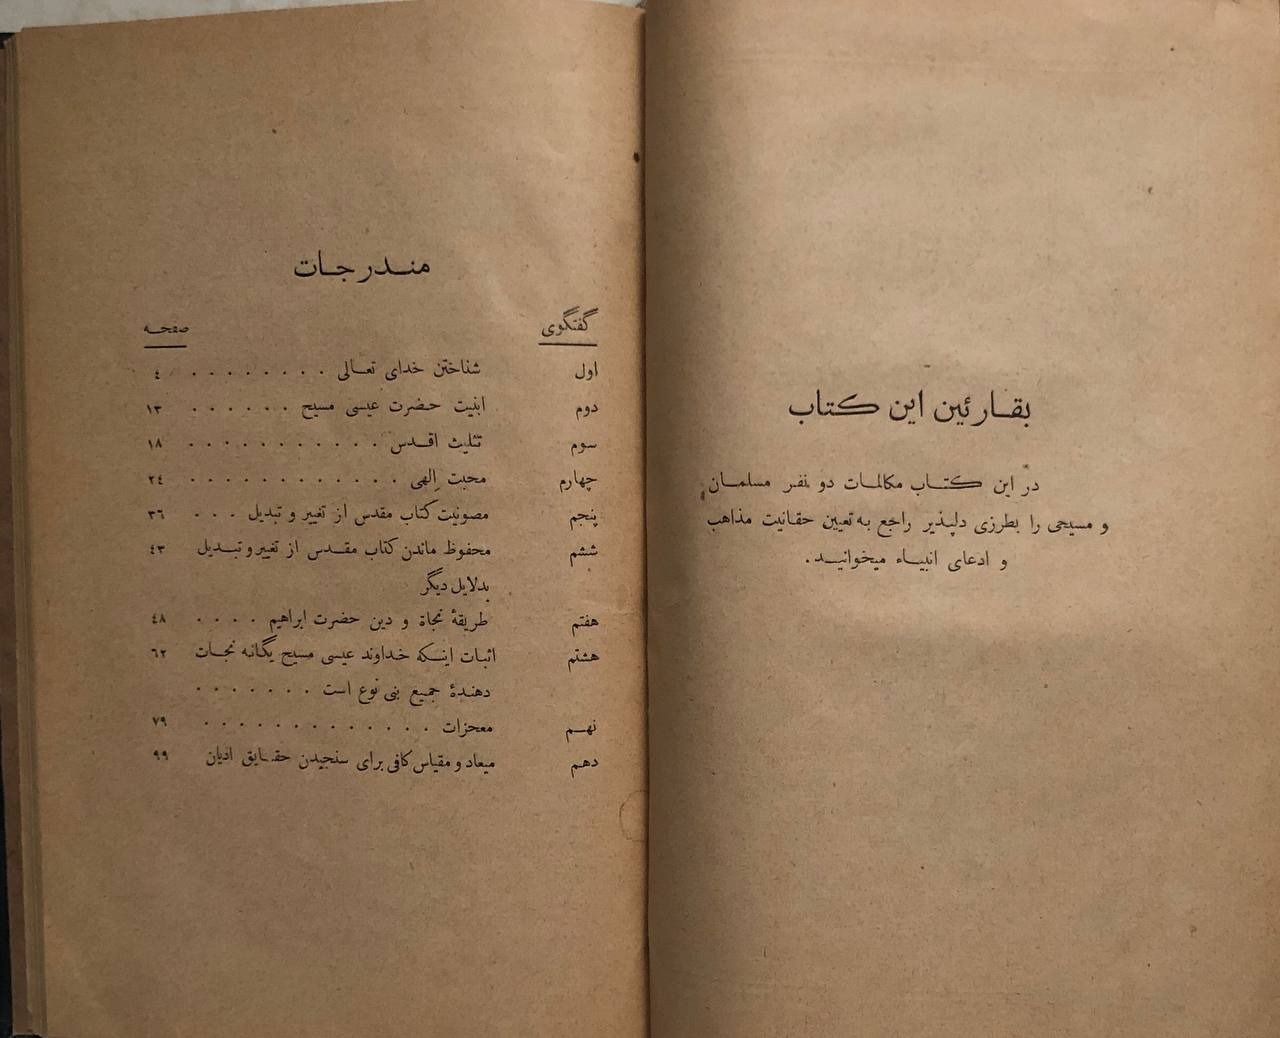 بقارئین این کتاب
در این کتاب مکالمات دو نفر مسلمان
و مسیحی را بطرزی دلپذیر راجع به تعیین حقانیت مذاهب
و ادعای انبیاء میخوانید.
مندرجات
گفتگوی صفحه
اول شناختن خدای تعالی ........ ٤
دوم ابنیت حضرت عیسی مسیح ...... ١٣
سوم تثلیث اقدس ........... ١٨
چهارم محبت اِلهی ............ ٢٤
پنجم مصونیت کتاب مقدس از تغییر و تبدیل ... ٣٦
ششم محفوظ ماندن کتاب مقدس از تغییر و تبدیل ٤٣
بدلایل دیگر
هفتم طریقهٔ نجاة و دین حضرت ابراهیم .... ٤٨
هشتم اثبات اینکه خداوند عیسی مسیح یگانه نجات ٦٢
دهندهٔ جمیع بنی نوع است .......
نهم معجزات ............. ٧٩
دهم میعاد و مقیاس کافی برای سنجیدن حقایق ادیان ٩٩